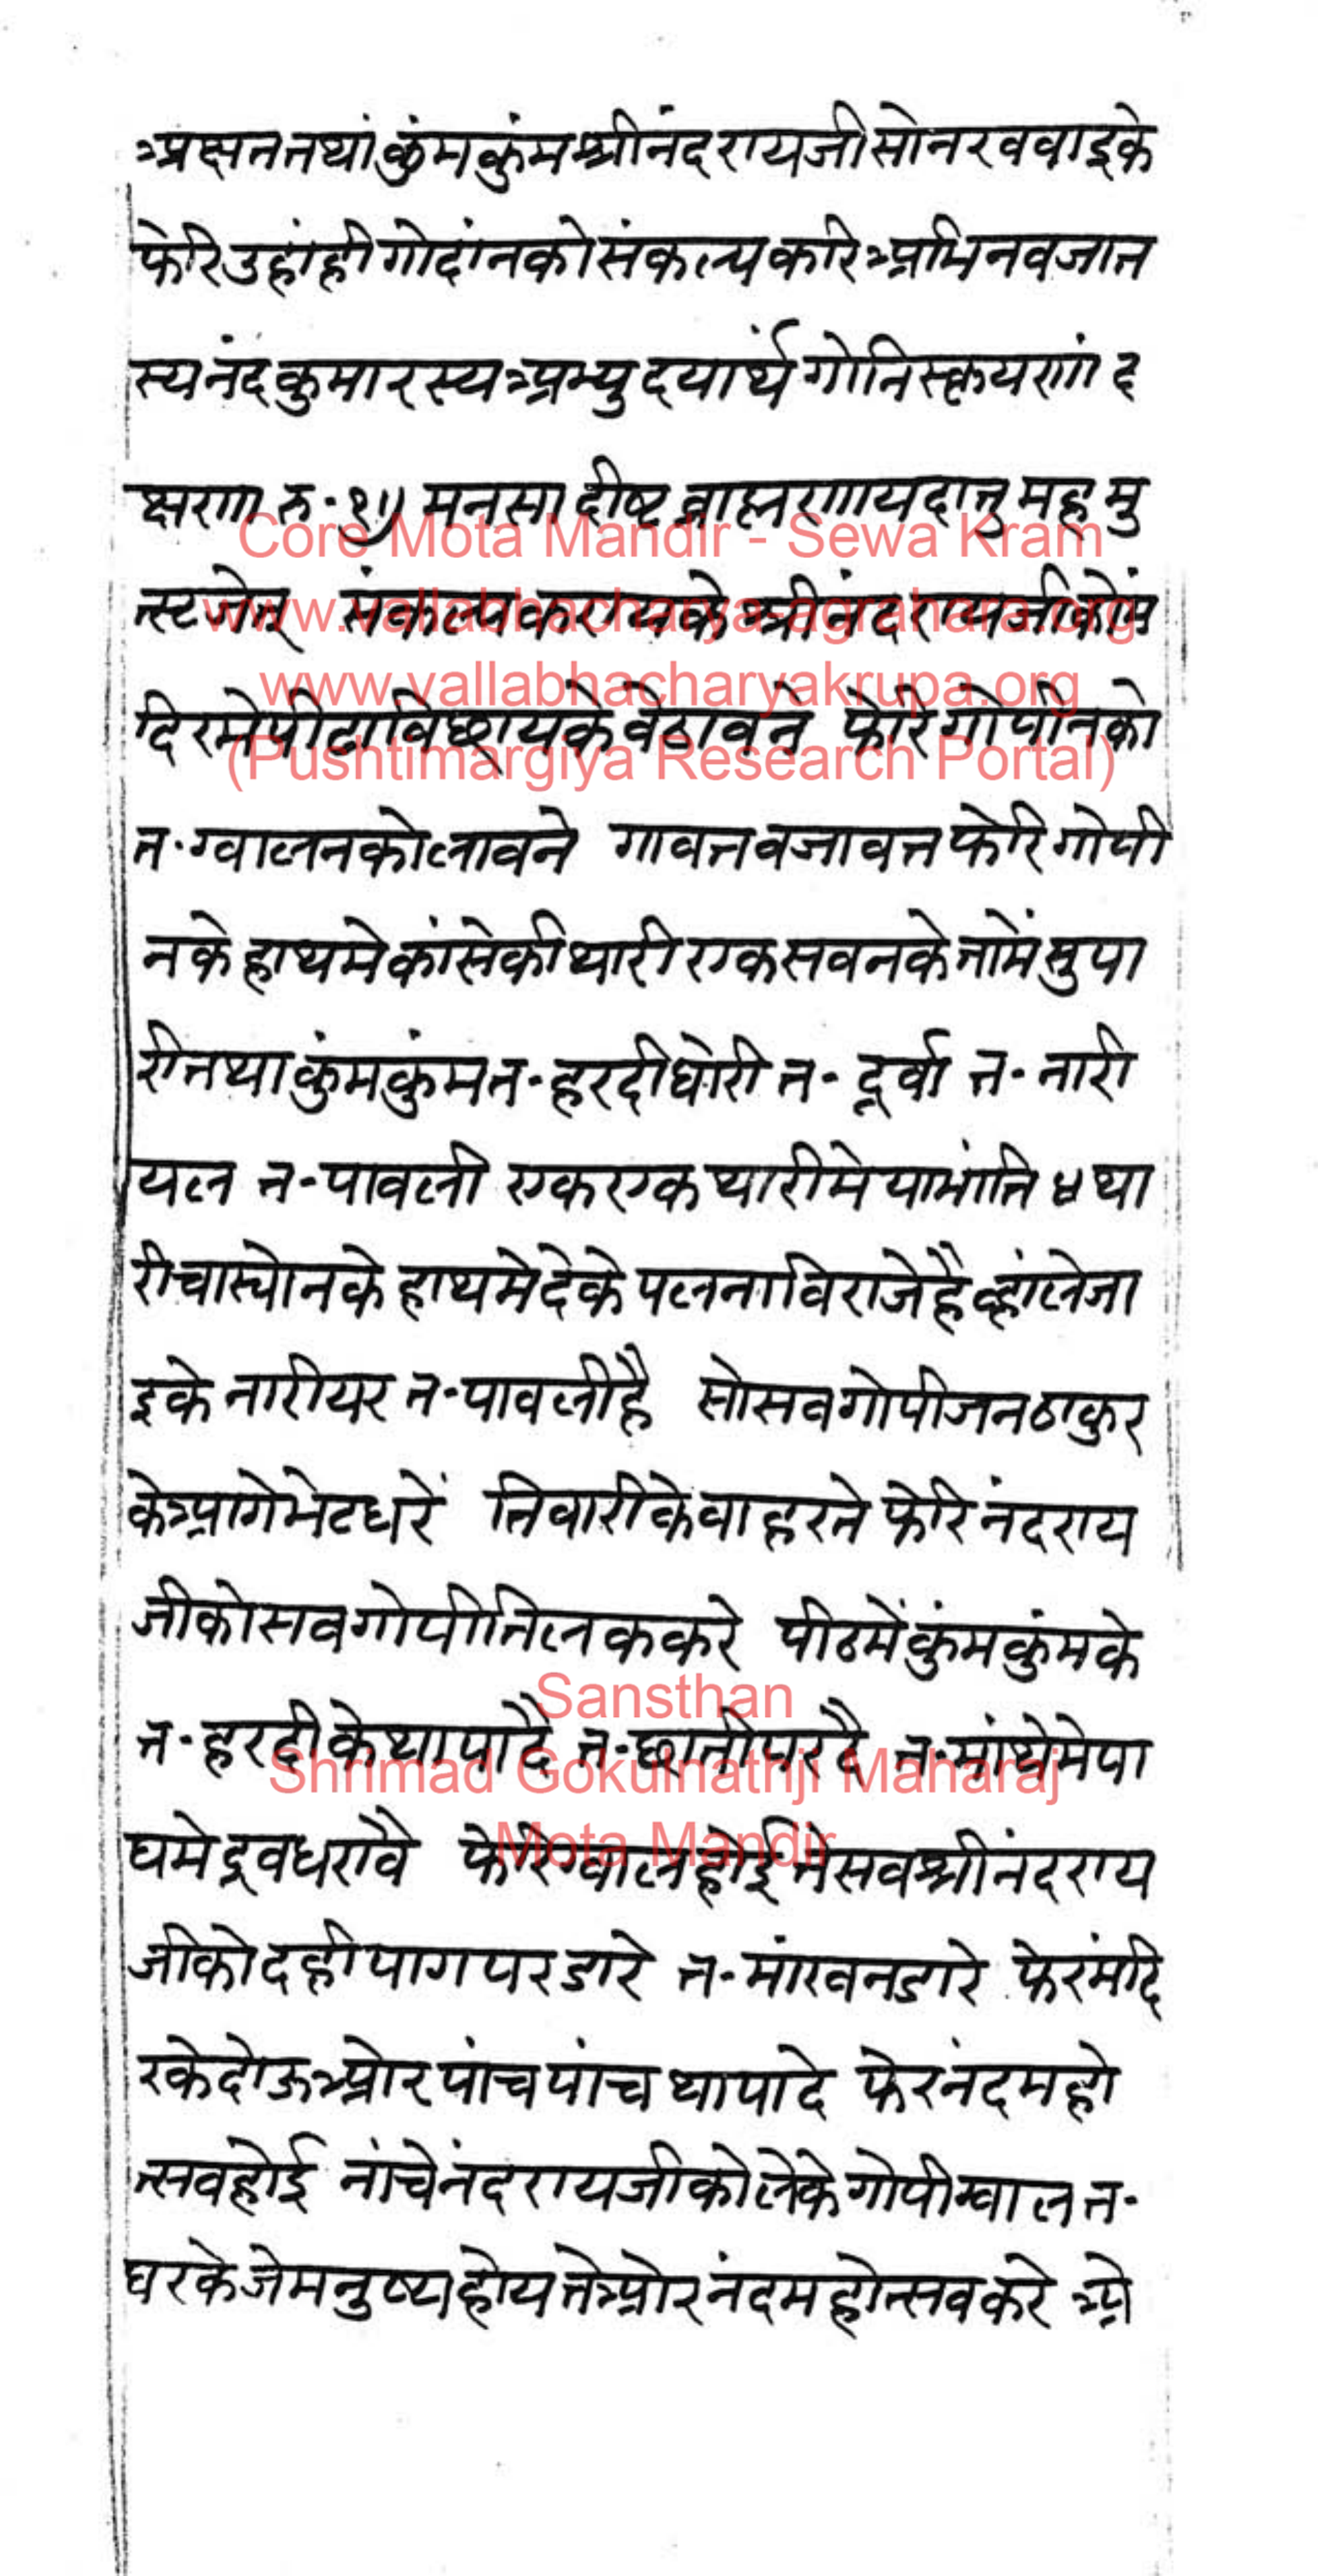 अक्षत तथां कुंमकुंम श्रीनंदरायजी सो नखवाइके
फेरि उहांही गोदांनको संकल्प करि अभिनवजात
स्य नंदकुमारस्य अभ्युदयार्थं गोनिस्क्रयणं द
क्षणा रु·१॥ मनसादीष्ट ब्राह्मणाय दातुमहमु
त्स्टजेत् संकल्प करायके श्रीनंदरायजीकोमं
दिरमे पीढा विछायके वेठावने फेरि गोपीनको
त·ग्वालनको लावने गावत वजावत फेरि गोपी
नके हाथमे कांसेकी थारी एक सवनके तामें सुपा
री तथा कुंमकुंम त·हरदी घोरी त·दूर्वा त·नारी
यल त·पावली एक एक थारीमे या भांति ४ था
री चास्योनके हाथमे देके पलना विराजे है व्हां ले जा
इके नारीयर त·पावली है सो सव गोपीजन ठाकुर
के आगे भेट धरें तिवारी के वाहर ते फेरि नंदराय
जीको सव गोपी तिलक करे पीठमें कुंमकुंम के
त·हरदी के थापा दै त·छाती पर दै त·मांथेमे पा
घमे द्रव धरावै फेरि ग्वाल होई ते सव श्रीनंदराय
जीको दही पाग पर डारे त·मांखन डारे फेर मंदि
रके दोऊ ओर पांच पांच थापा दे फेर नंदमहो
त्सव होई नांचे नंदरायजीको लेके गोपी ग्वाल त·
घरके जे मनुष्य होय ते ओर नंदमहोत्सव करे ओ
Core Mota Mandir - Sewa Kram
www.vallabhacharya-agrahara.org
www.vallabhacharyakrupa.org
(Pushtimargiya Research Portal)
Sansthan
Shrimad Gokulnathji Maharaj
Mota Mandir